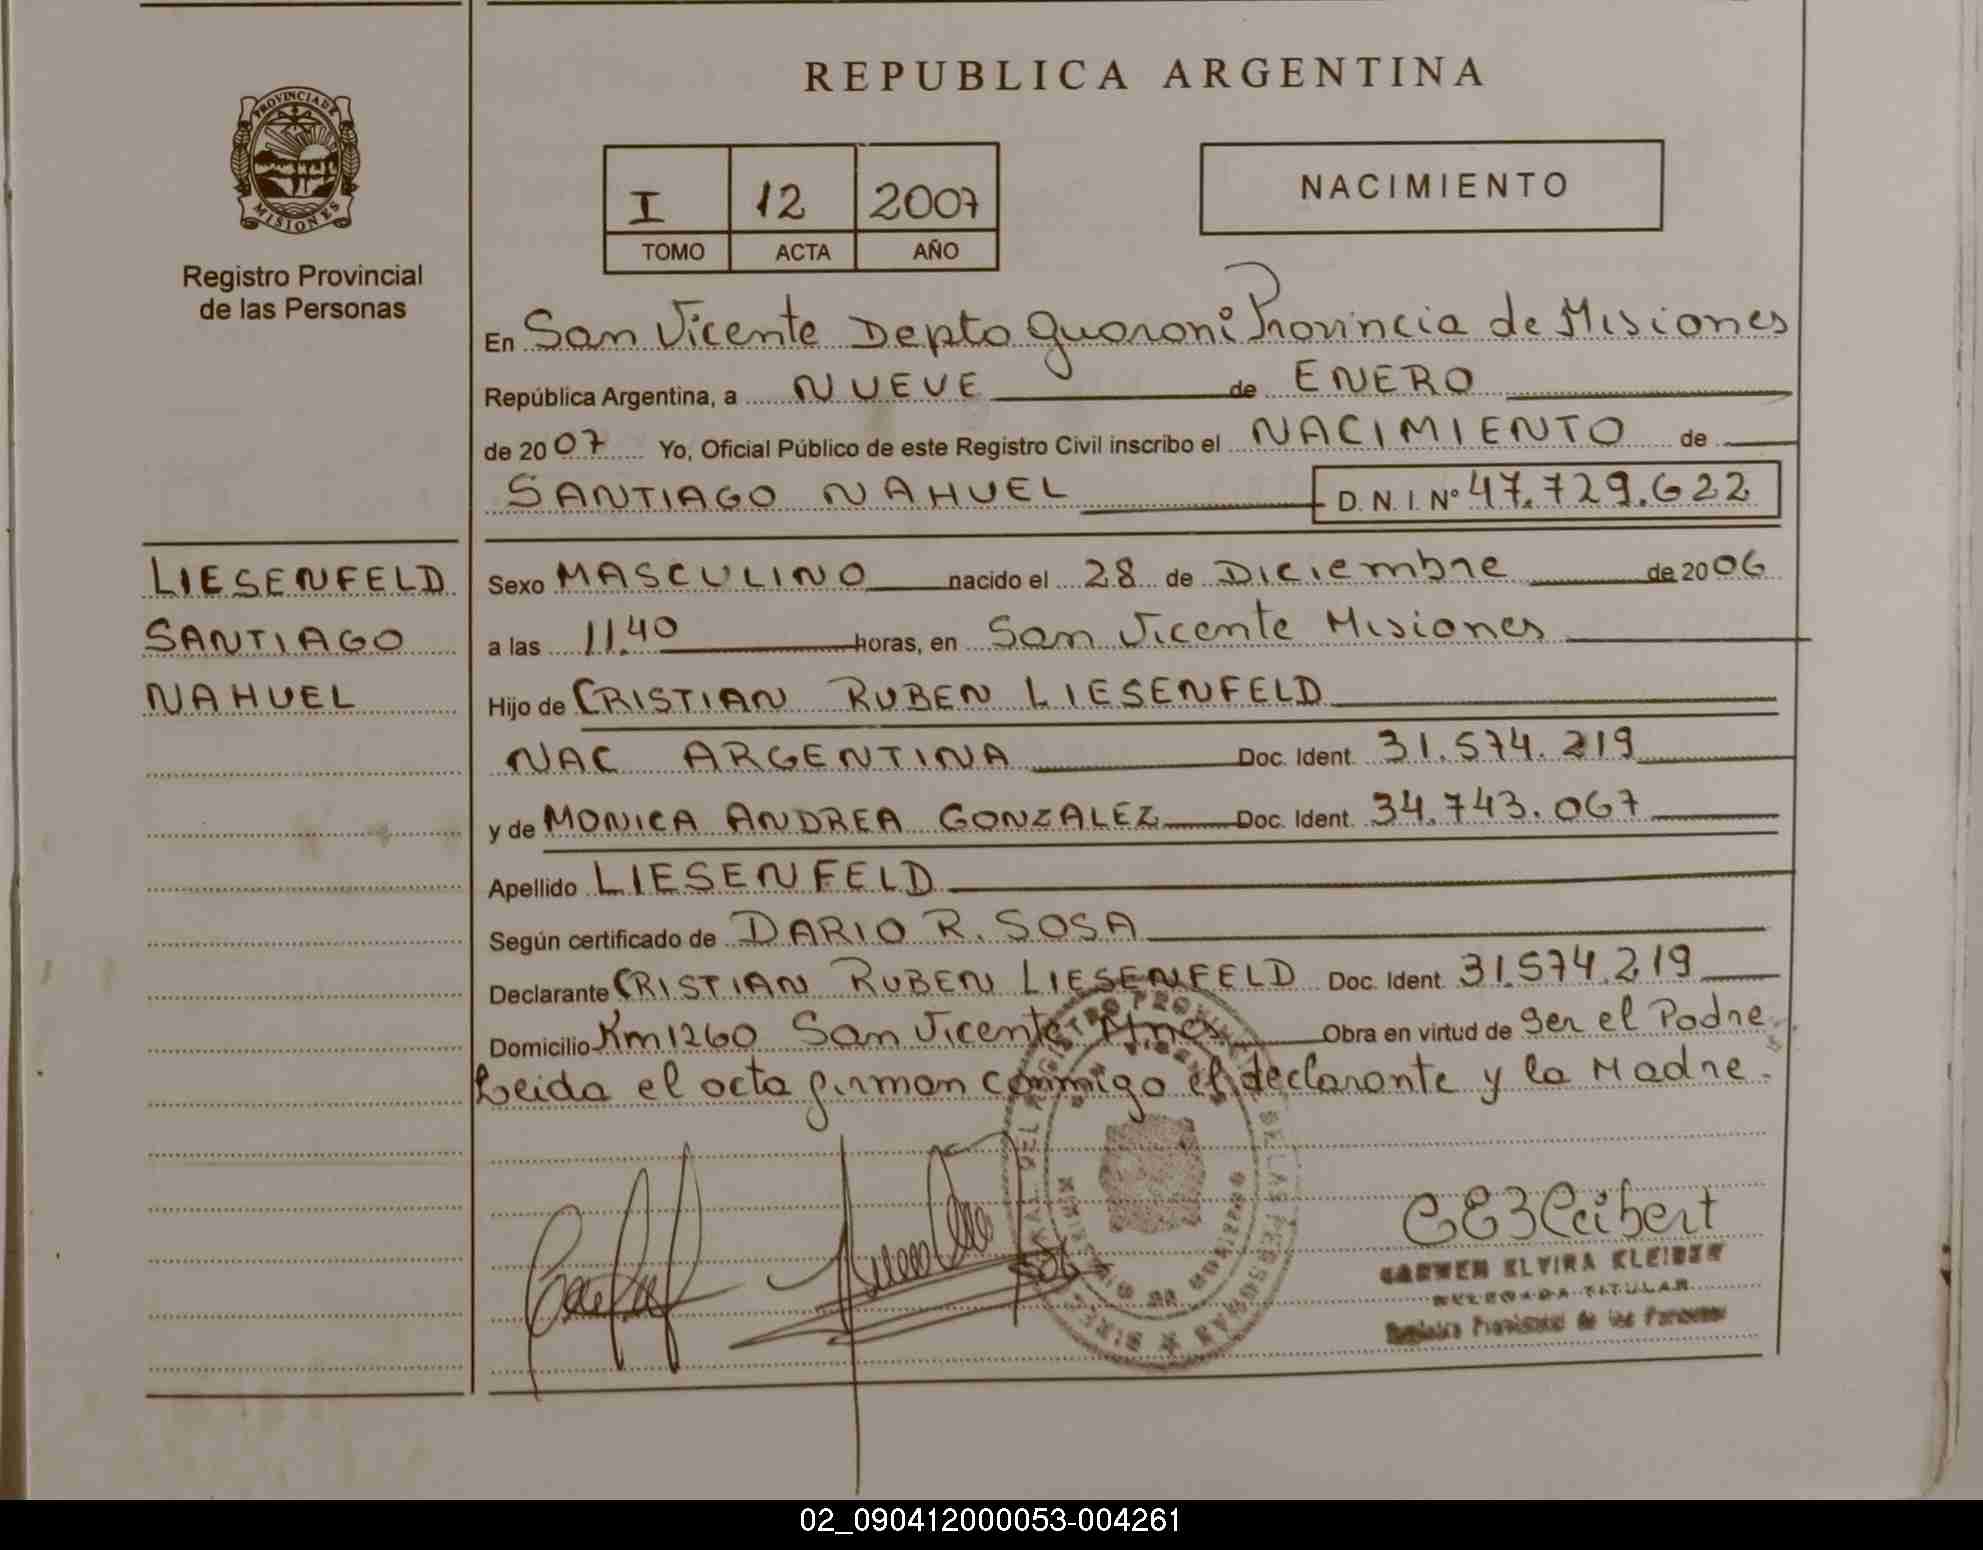 REPUBLICA ARGENTINA
PROVINCIA DE
MISIONES
Registro Provincial
de las Personas
I 12 2007
TOMO ACTA AÑO
NACIMIENTO
En San Vicente Depto Guarani Provincia de Misiones
República Argentina, a NUEVE de ENERO
de 2007 Yo, Oficial Público de este Registro Civil inscribo el NACIMIENTO de
SANTIAGO NAHUEL D.N.I. Nº 47.729.622
LIESENFELD
SANTIAGO
NAHUEL
Sexo MASCULINO nacido el 28 de Diciembre de 2006
a las 11.40 horas, en San Vicente Misiones
Hijo de CRISTIAN RUBEN LIESENFELD
NAC ARGENTINA Doc. Ident. 31.574.219
y de MONICA ANDREA GONZALEZ Doc. Ident. 34.743.067
Apellido LIESENFELD
Según certificado de DARIO R. SOSA
Declarante CRISTIAN RUBEN LIESENFELD Doc. Ident. 31.574.219
Domicilio Km 1260 San Vicente Mnes Obra en virtud de ser el Padre
Leida el acta firman conmigo el declarante y la Madre.
CARMEN ELVIRA
DELEGADA TITULAR
Provincial de las Personas
02_090412000053-004261